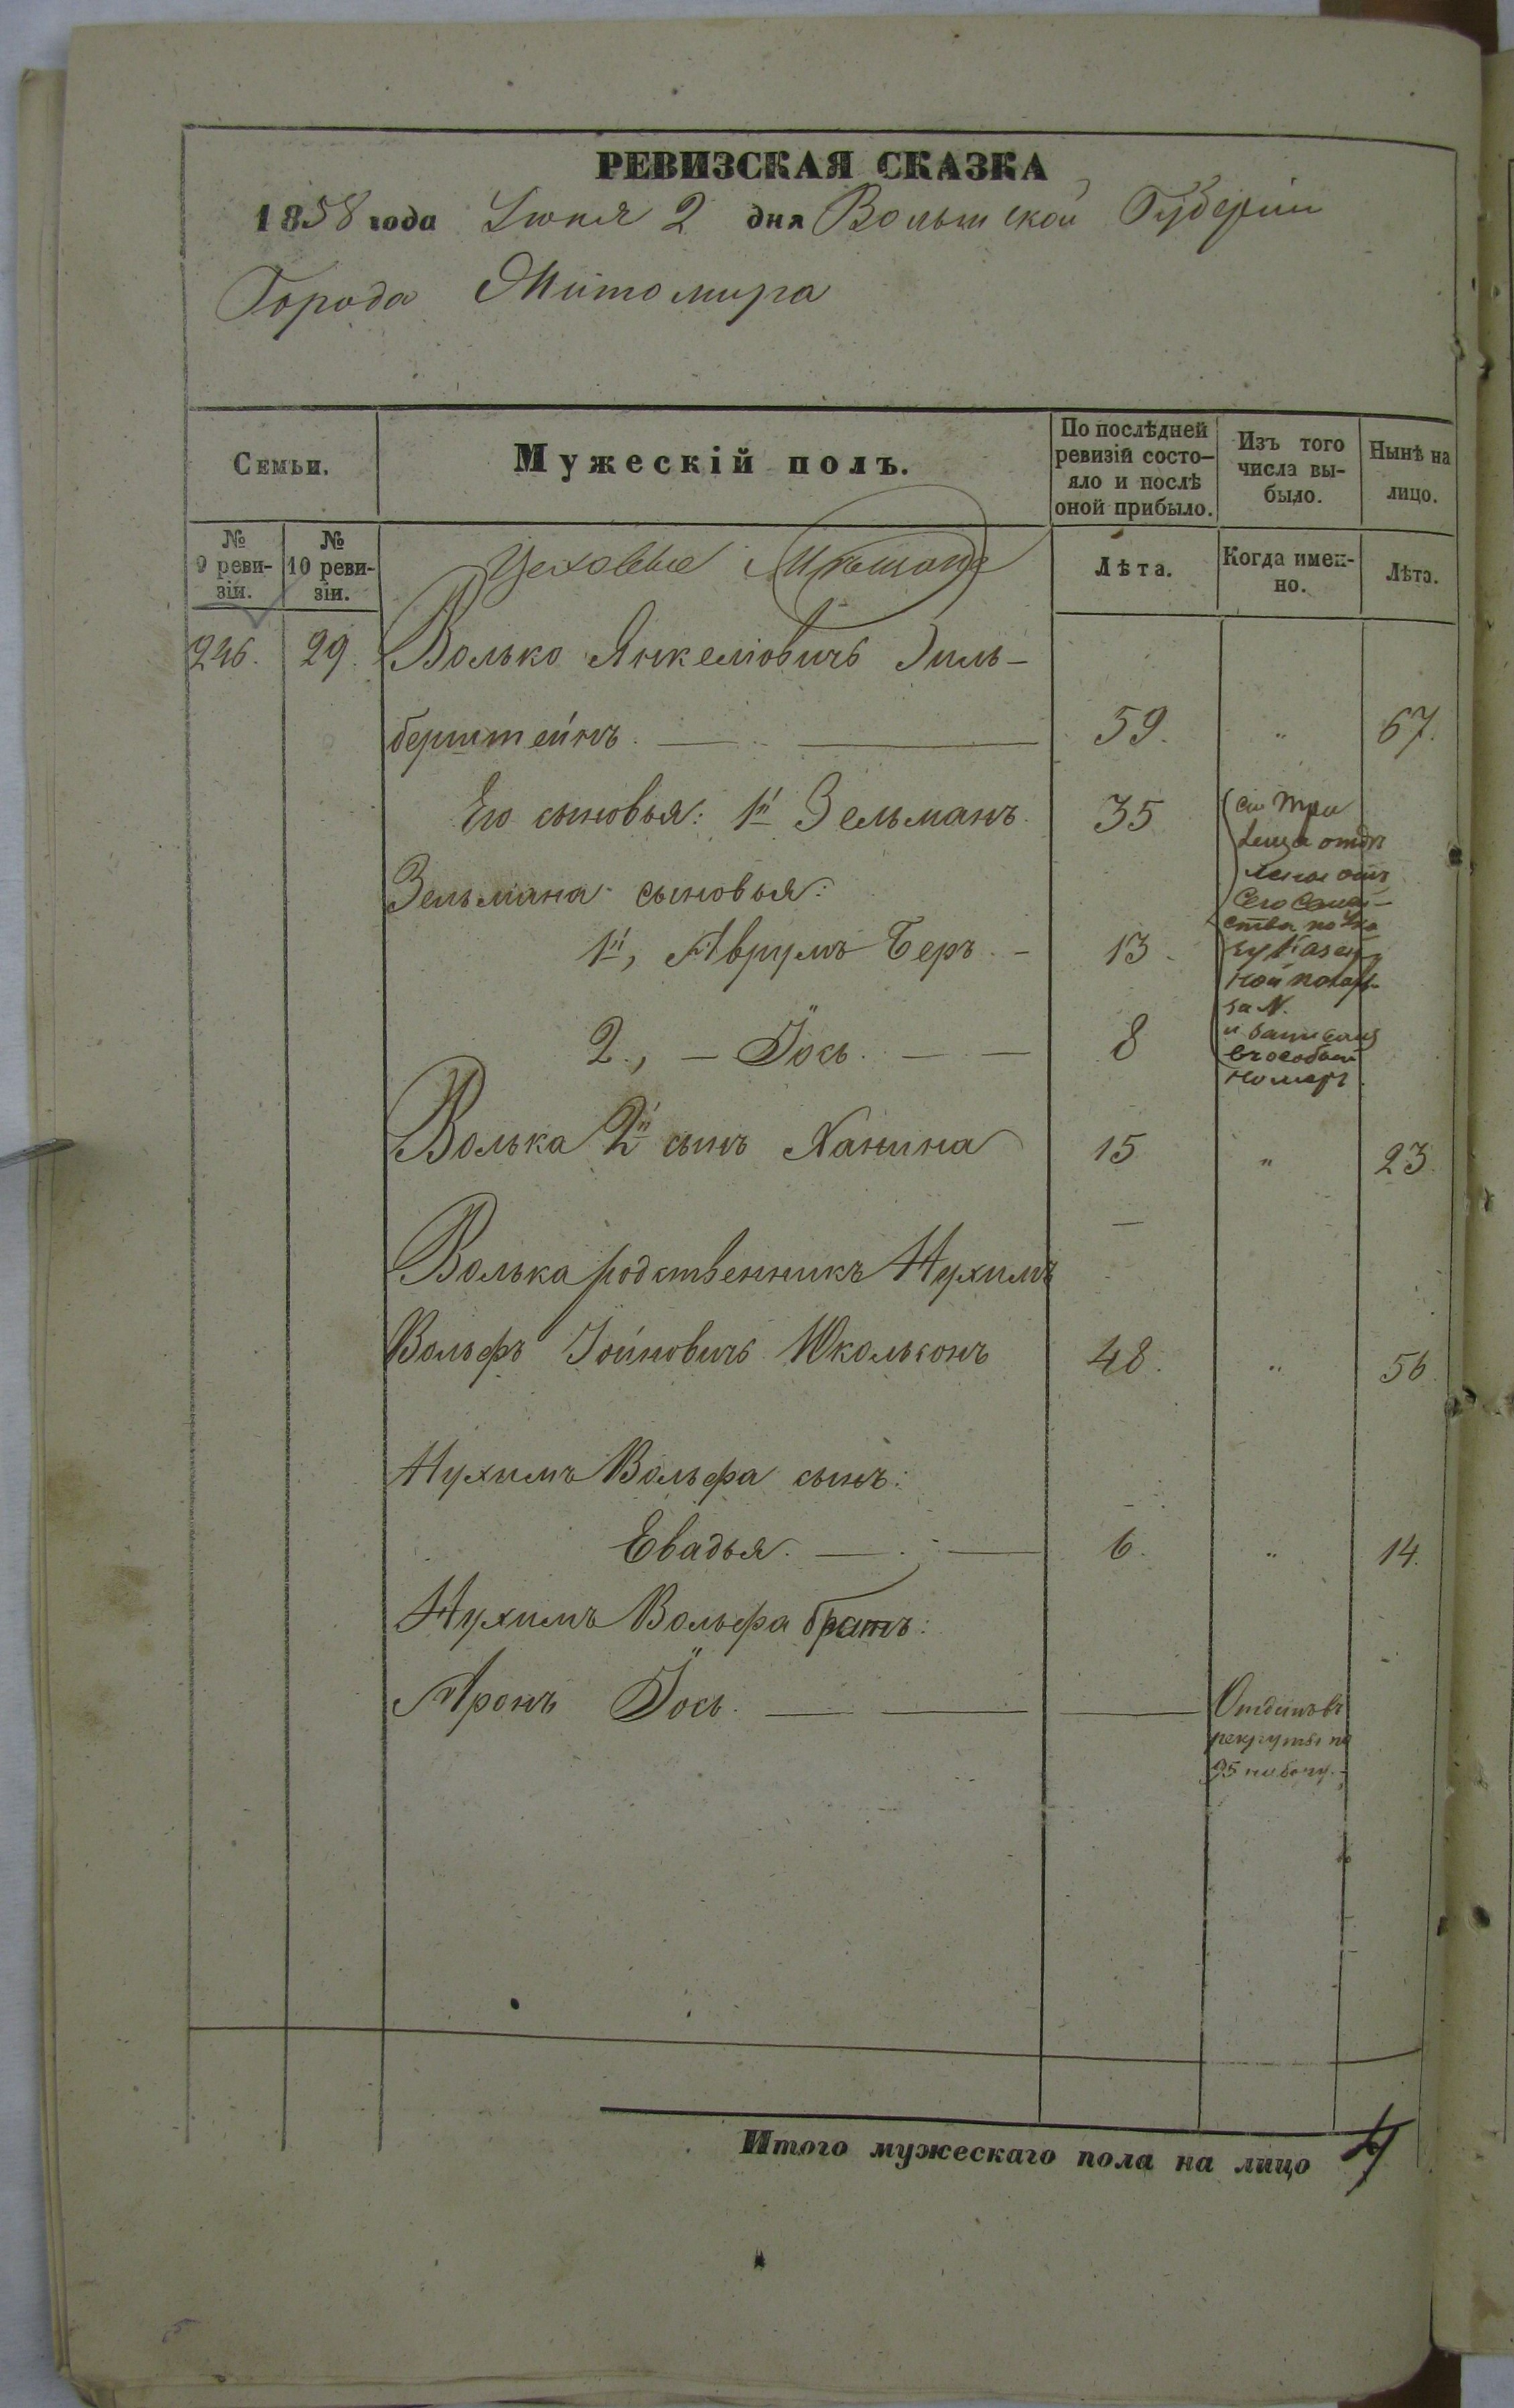 РЕВИЗСКАЯ СКАЗКА
1858 года Іюня 2 дня Волынской Губерніи
Города Житомира
Семьи.
Мужескій полъ.
По послѣдней ревизій состо-
яло и послѣ
оной прибыло.
Изъ того
числа вы-
было.
Нынѣ на
лицо.
№
9 реви-
зіи.
№
10 реви-
зіи.
Цеховые Мѣщане
Лѣта.
Когда имен-
но.
Лѣта.
246. 29. Волько Янкелiовичъ Зиль-
берштейнъ. 59. " 67.
Его сыновья: 1й Зельманъ 35
Зельмана сыновья:
1й, Аврумъ Беръ. 13
2., Іось. 8
сіи три
лица отдѣ
лены отъ
сего семей-
ства по Ука
зу Казен
ной палаты
за N.
и записаны
въ особый
номеръ.
Волька 2й сынъ Ханина 15 " 23
Волька родственникъ Нухимъ
Вольфъ Іойновичъ Школьконъ 48. " 56
Нухимъ Вольфа сынъ:
Евадья. 6. " 14.
Нухимъ Вольфа братъ:
Аронъ Іось.
Отданъ въ
рекруты по
95 набору.
Итого мужескаго пола на лицо 4